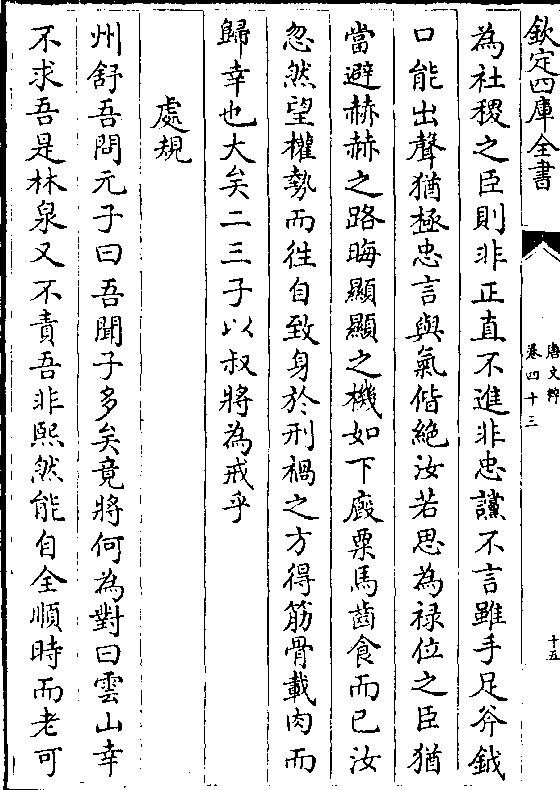 欽定四庫全書
唐文粹
卷四十三
十五
為社稷之臣則非正直不進非忠讜不言雖手足斧鉞
口能出聲猶極忠言與氣偕絶汝若思為禄位之臣猶
當避赫赫之路晦顯顯之機如下廄粟馬齒食而已汝
忽然望權勢而往自致身於刑禍之方得筋骨載肉而
歸幸也大矣二三子以叔將為戒乎
處規
州舒吾問元子曰吾聞子多矣竟將何為對曰雲山幸
不求吾是林泉又不責吾非熙然能自全順時而老可